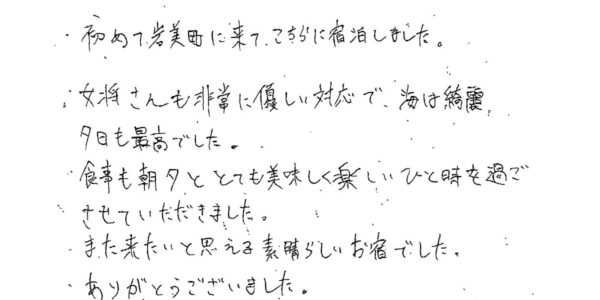 ・初めて岩美町に来て、こちらに宿泊しました。
・女将さんも非常に優しい対応で、海は綺麗、
夕日も最高でした。
・食事も朝夕と とても美味しく楽しいひと時を過ご
させていただきました。
・また来たいと思える素晴らしいお宿でした。
・ありがとうございました。